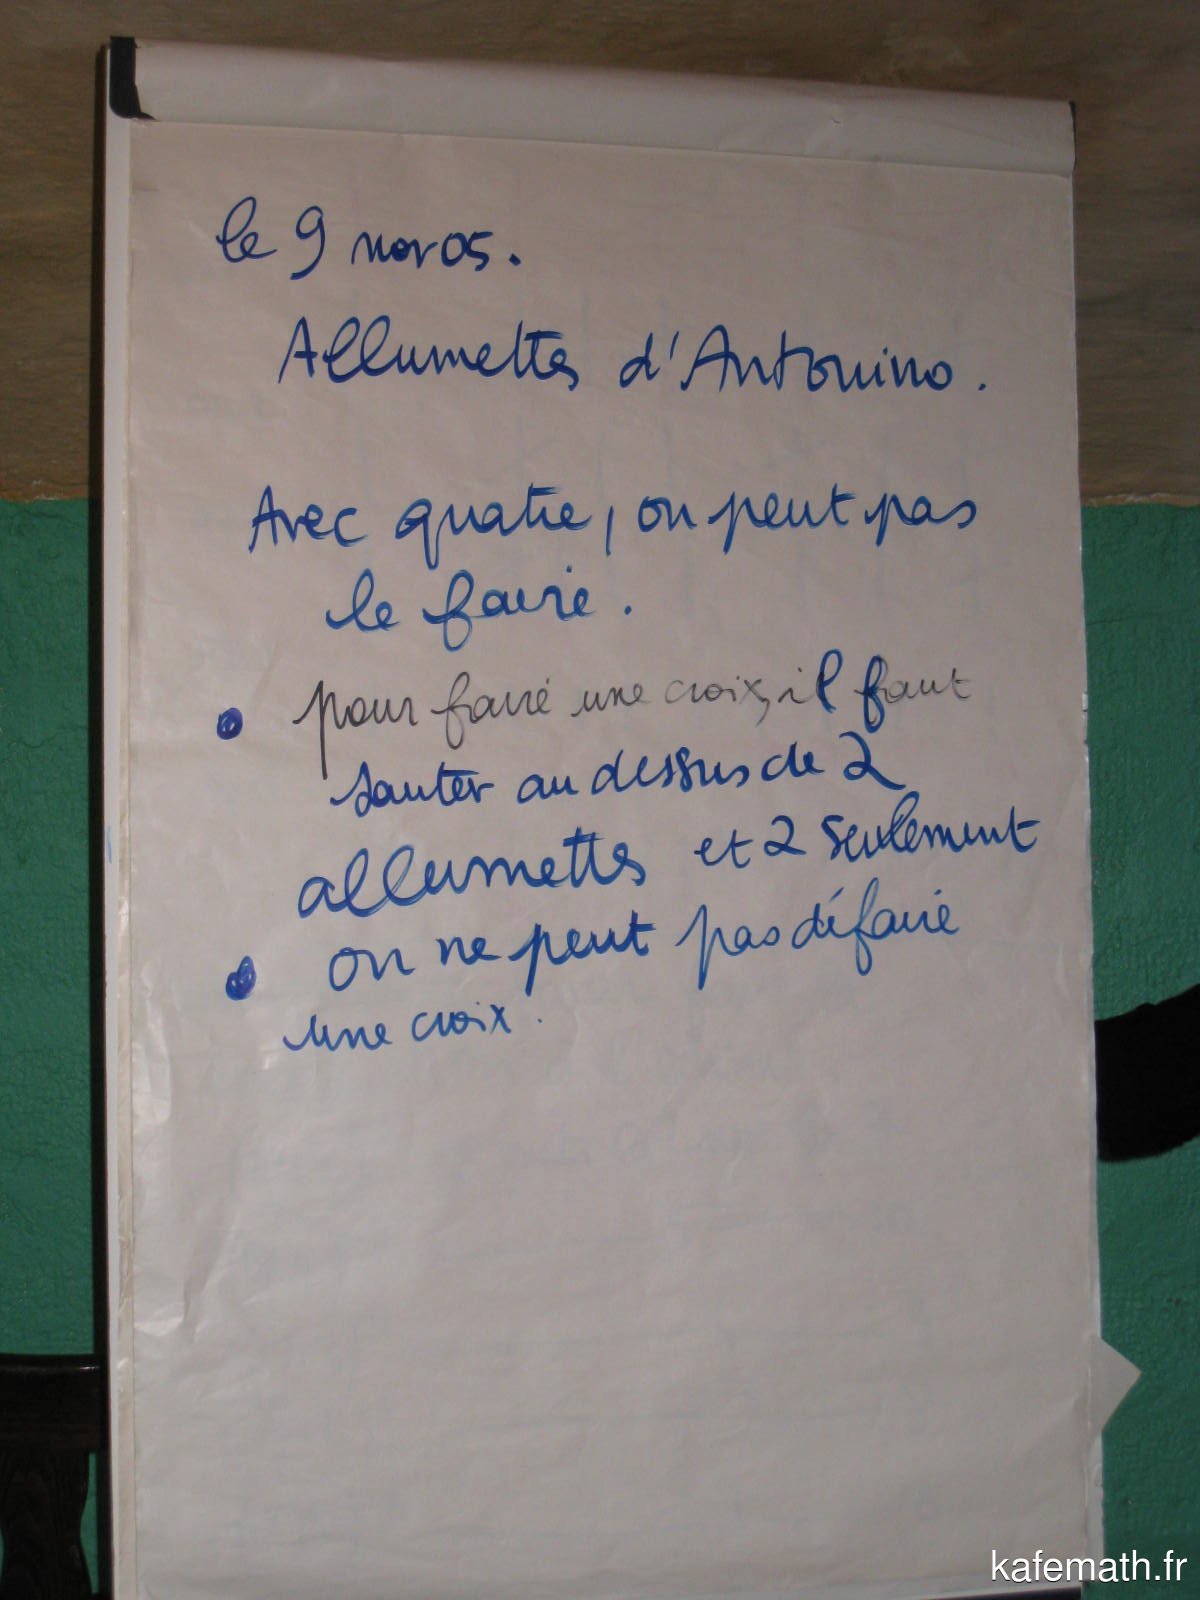 le 9 nov 05.
Allumettes d'Antonino.
Avec quatre, on peut pas
le faire.
• pour faire une croix, il faut
sauter au dessus de 2
allumettes et 2 seulement
• on ne peut pas défaire
une croix.
kafemath.fr